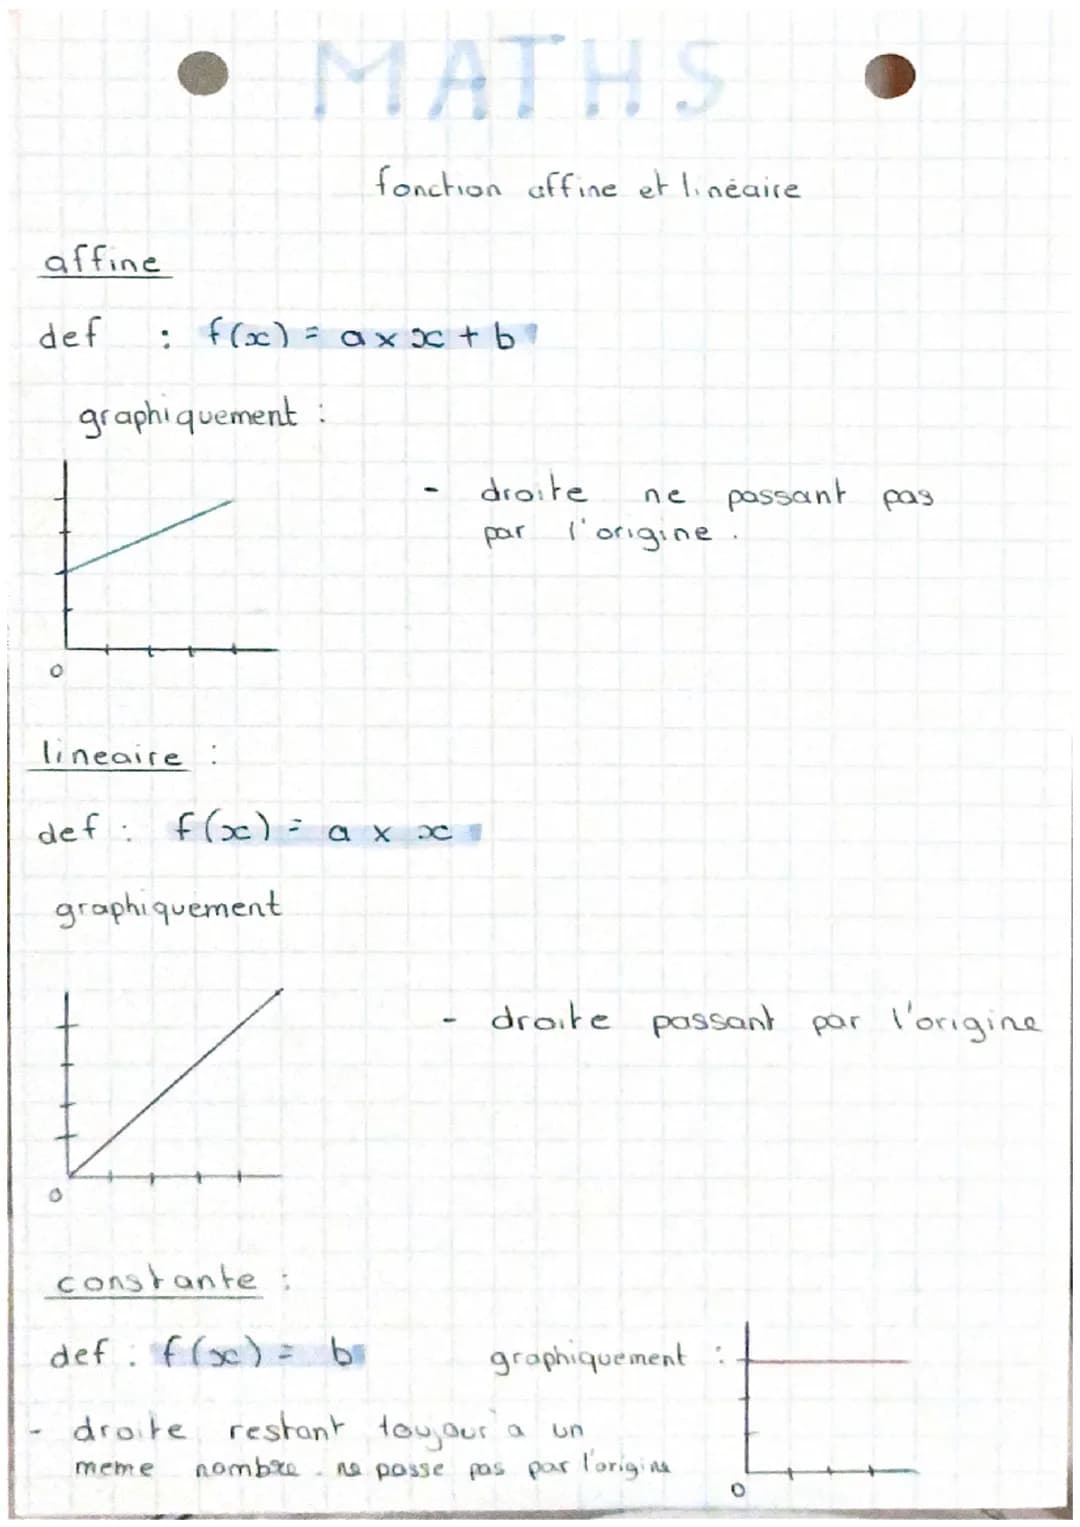 MATHS
fonction affine et linéaire
affine
def : f(x) = a x x + b
graphiquement :
- droite ne passant pas
par l'origine.
0
lineaire :
def : f(x) = a x x
graphiquement
- droite passant par l'origine
0
constante :
def : f(x) = b
graphiquement :
- droite restant toujour a un
meme nombre. ne passe pas par l'origine
0